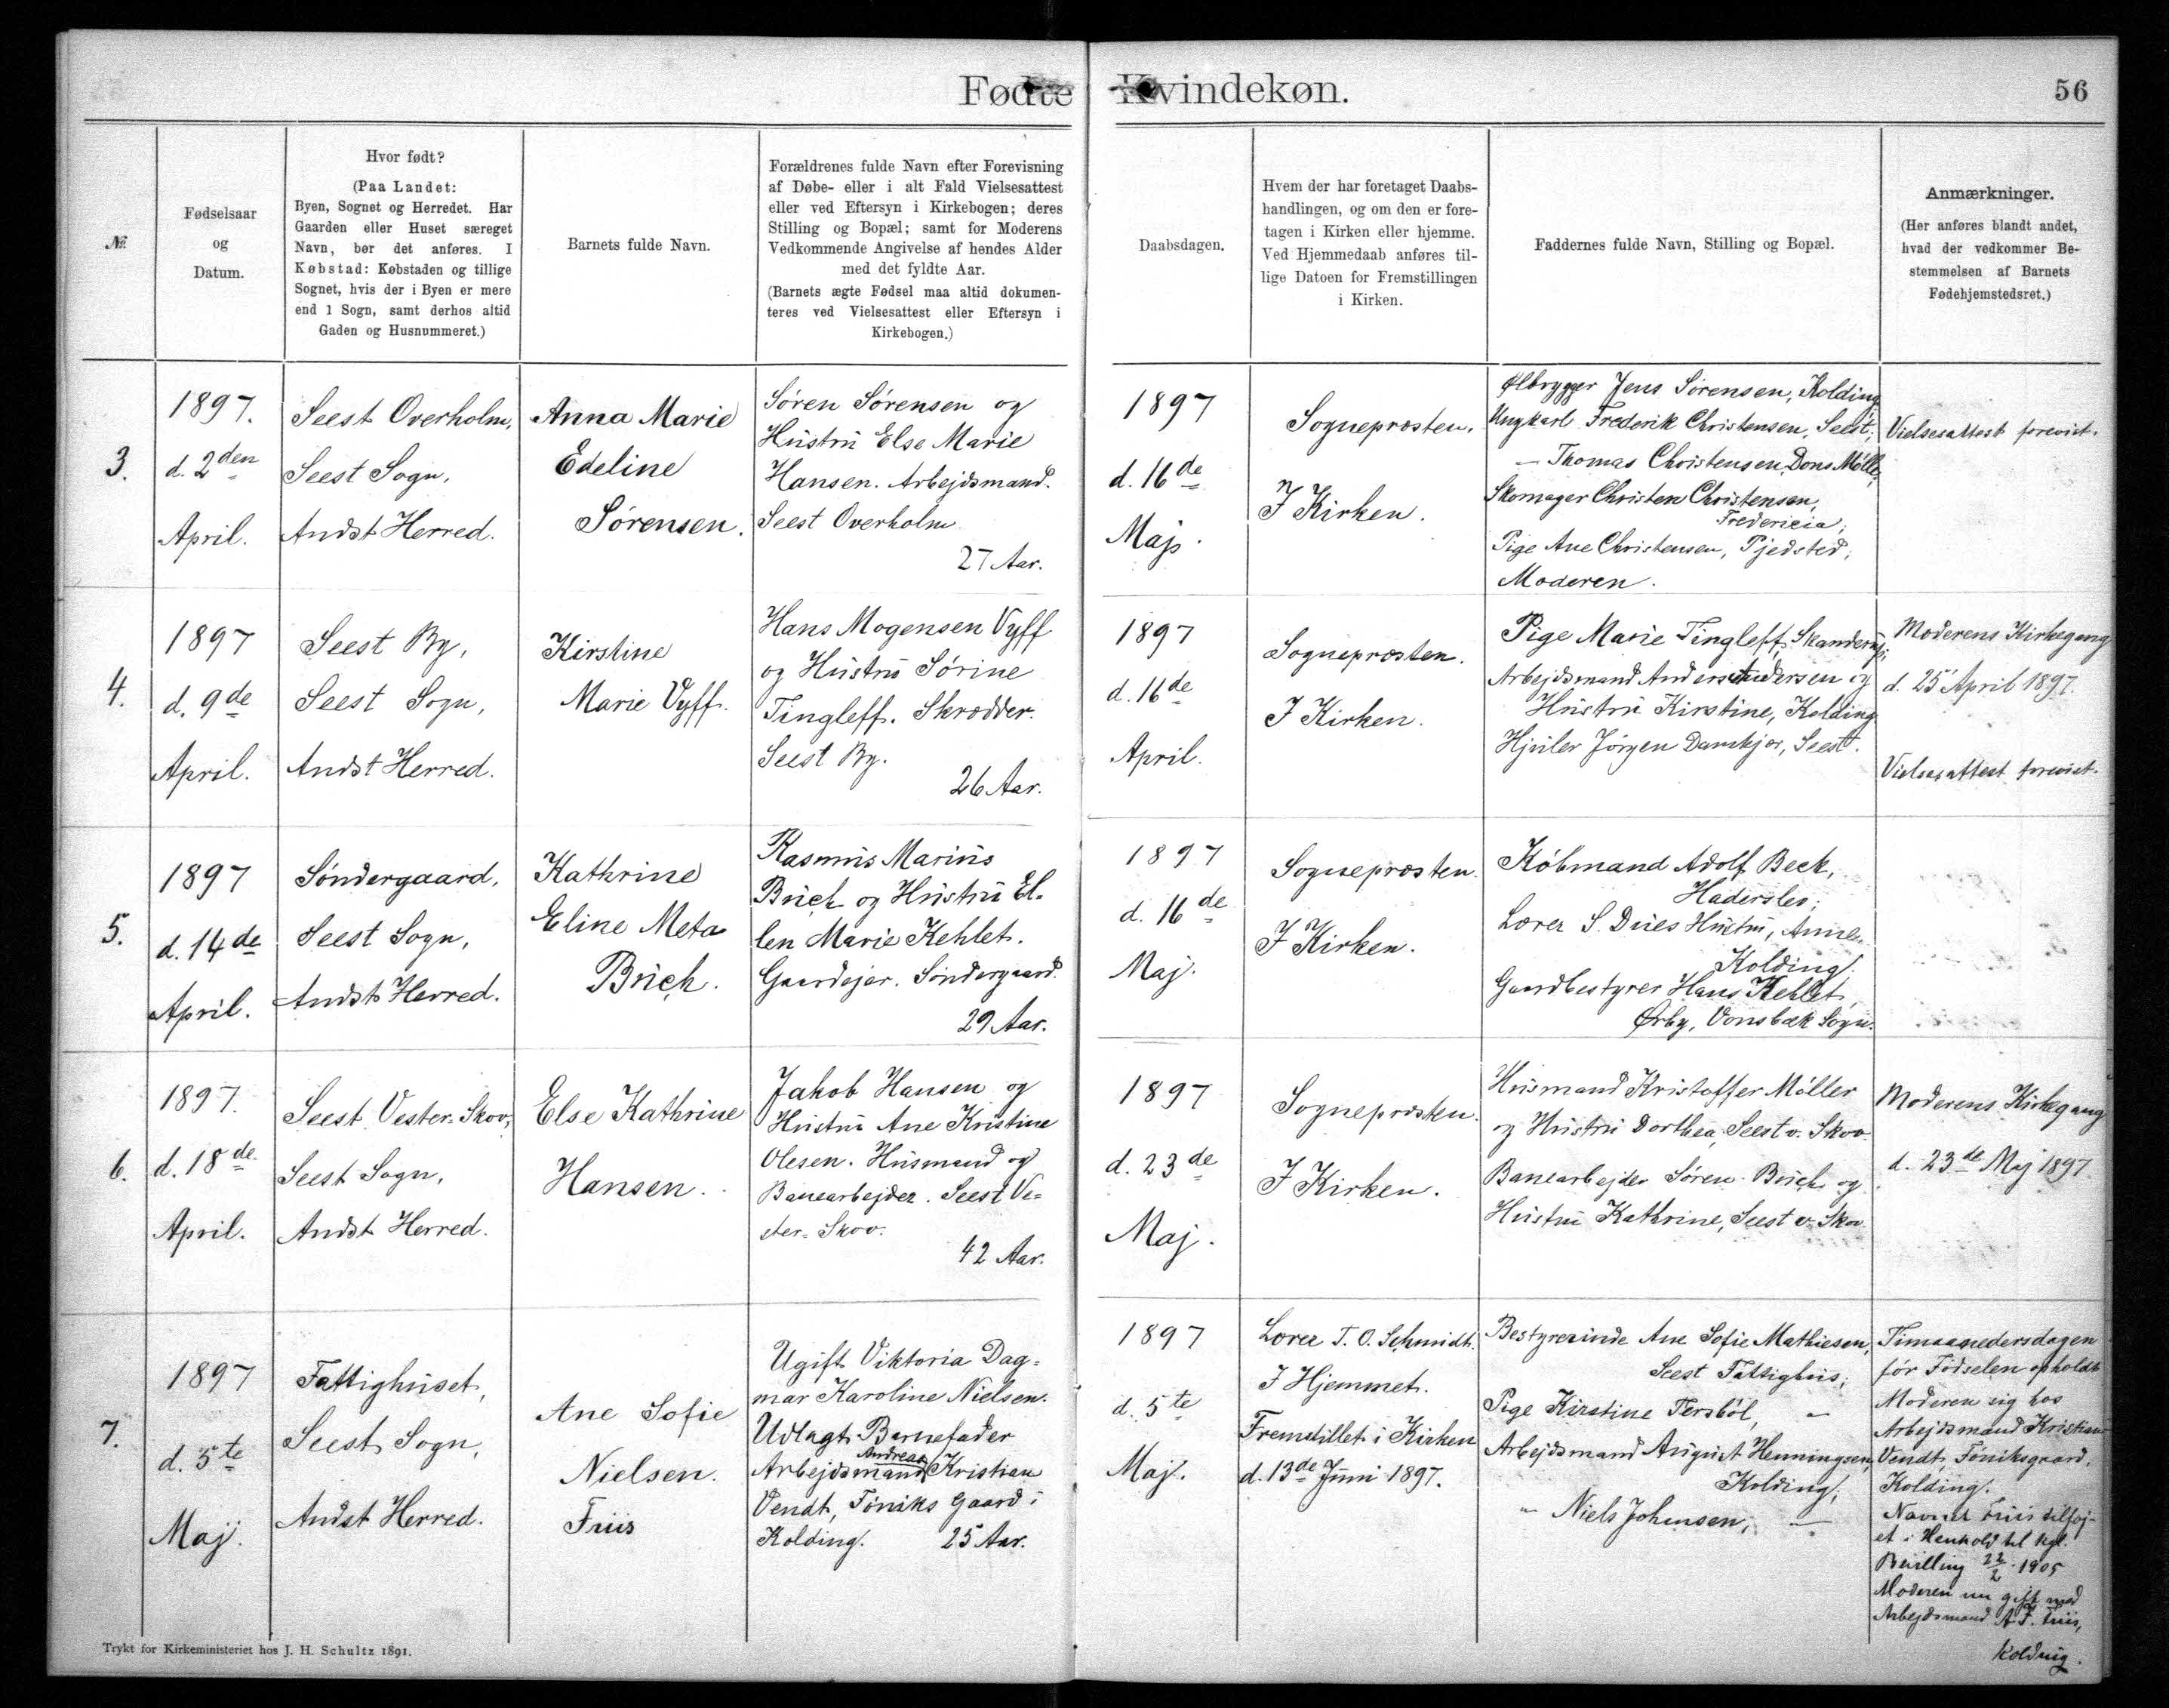 Fødte Kvindekøn.
56
№
Fødselsaar
og
Datum.
Hvor født?
(Paa Landet:
Byen, Sognet og Herredet. Har
Gaarden eller Huset særeget
Navn, bør det anføres. I
Købstad: Købstaden og tillige
Sognet, hvis der i Byen er mere
end 1 Sogn, samt derhos altid
Gaden og Husnummeret.)
Barnets fulde Navn.
Forældrenes fulde Navn efter Forevisning
af Døbe- eller i alt Fald Vielsesattest
eller ved Eftersyn i Kirkebogen; deres
Stilling og Bopæl; samt for Moderens
Vedkommende Angivelse af hendes Alder
med det fyldte Aar.
(Barnets ægte Fødsel maa altid dokumen-
teres ved Vielsesattest eller Eftersyn i
Kirkebogen.)
Daabsdagen.
Hvem der har foretaget Daabs-
handlingen, og om den er fore-
tagen i Kirken eller hjemme.
Ved Hjemmedaab anføres til-
lige Datoen for Fremstillingen
i Kirken.
Faddernes fulde Navn, Stilling og Bopæl.
Anmærkninger.
(Her anføres blandt andet,
hvad der vedkommer Be-
stemmelsen af Barnets
Fødehjemstedsret.)
3.
1897.
d. 2den
April.
Seest Overholm,
Seest Sogn,
Andst Herred.
Anna Marie
Edeline
Sørensen.
Søren Sørensen og
Hustru Else Marie
Hansen. Arbejdsmand.
Seest Overholm
27 Aar.
1897
d. 16de
Maj.
Sognepræsten.
I Kirken.
Ølbrygger Jens Sørensen, Kolding
Ungkarl Frederik Christensen, Seest;
— Thomas Christensen, Dons Mølle;
Skomager Christen Christensen,
Fredericia;
Pige Ane Christensen, Pjedsted;
Moderen.
Vielsesattest forevist.
4.
1897
d. 9de
April.
Seest By,
Seest Sogn,
Andst Herred.
Kirstine
Marie Vyff.
Hans Mogensen Vyff
og Hustru Sørine
Tingleff. Skrædder.
Seest By.
26 Aar.
1897
d. 16de
April.
Sognepræsten.
I Kirken.
Pige Marie Tingleff, Skanderup;
Arbejdsmand Anders Andersen og
Hustru Kirstine, Kolding
Hjuler Jørgen Damkjær, Seest.
Moderens Kirkegang
d. 25 April 1897.
Vielsesattest forevist.
5.
1897
d. 14de
April.
Søndergaard,
Seest Sogn,
Andst Herred.
Kathrine
Eline Meta
Buch.
Rasmus Marius
Buch og Hustru El-
len Marie Kehlet.
Gaardejer. Søndergaard.
29 Aar.
1897
d. 16de
Maj.
Sognepræsten.
I Kirken.
Købmand Adolf Beck,
Haderslev;
Lærer S. Dues Hustru, Anne
Kolding.
Gaardbestyrer Hans Kehlet,
Ørby, Vonsbæk Sogn.
6.
1897.
d. 18de
April.
Seest Vester-Skov,
Seest Sogn,
Andst Herred.
Else Kathrine
Hansen.
Jakob Hansen og
Hustru Ane Kristine
Olesen. Husmand og
Banearbejder. Seest Ve-
ster-Skov.
42 Aar.
1897
d. 23de
Maj.
Sognepræsten.
I Kirken.
Husmand Kristoffer Møller
og Hustru Dorthea, Seest v. Skov.
Banearbejder Søren Buch og
Hustru Kathrine, Seest v. Skov.
Moderens Kirkegang
d. 23de Maj 1897
7.
1897
d. 5te
Maj.
Fattighuset,
Seest Sogn,
Andst Herred.
Ane Sofie
Nielsen.
Friis
Ugift Viktoria Dag-
mar Karoline Nielsen.
Udlagt Barnefader
Andreas
Arbejdsmand Kristian
Vendt, Føniks Gaard i
Kolding. 25 Aar.
1897
d. 5te
Maj.
Lærer T. O. Schmidt.
I Hjemmet.
Fremstillet i Kirken
d. 13de Juni 1897.
Bestyrerinde Ane Sofie Mathiesen,
Seest Fattighus;
Pige Kirstine Tersbøl, —
Arbejdsmand August Henningsen,
Kolding;
" Niels Johansen, —
Timaanedersdagen
før Fødselen opholdt
Moderen sig hos
Arbejdsmand Kristian
Vendt, Føniksgaard,
Kolding.
Navnet Friis tilføj-
et i Henhold til kgl.
Bevilling 22/2 1905
Moderen nu gift med
Arbejdsmand A. F. Friis,
Kolding.
Trykt for Kirkeministeriet hos J. H. Schultz 1891.